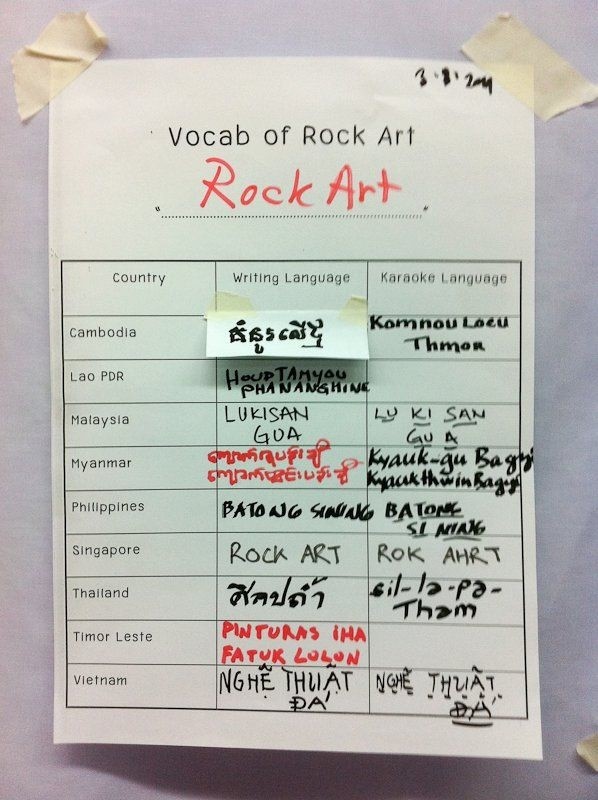 3.8.2011
Vocab of Rock Art
" Rock Art "
Country Writing Language Karaoke Language
Cambodia គំនូរលើថ្ម Komnou Loeu
Thmor
Lao PDR HOUP TAM YOU
PHANANGHINE
Malaysia LUKISAN LU KI SAN
GUA GU A
Myanmar Kyauk-gu Bagyi
Kyaukthwin Bagyi
Philippines BATONG SINING BATONG
SI NING
Singapore ROCK ART ROK AHRT
Thailand ศิลปถ้ำ sil-la-pa-
Tham
Timor Leste PINTURAS IHA
FATUK LOLON
Vietnam NGHỆ THUẬT NGHỆ THUẬT
ĐÁ ĐÁ